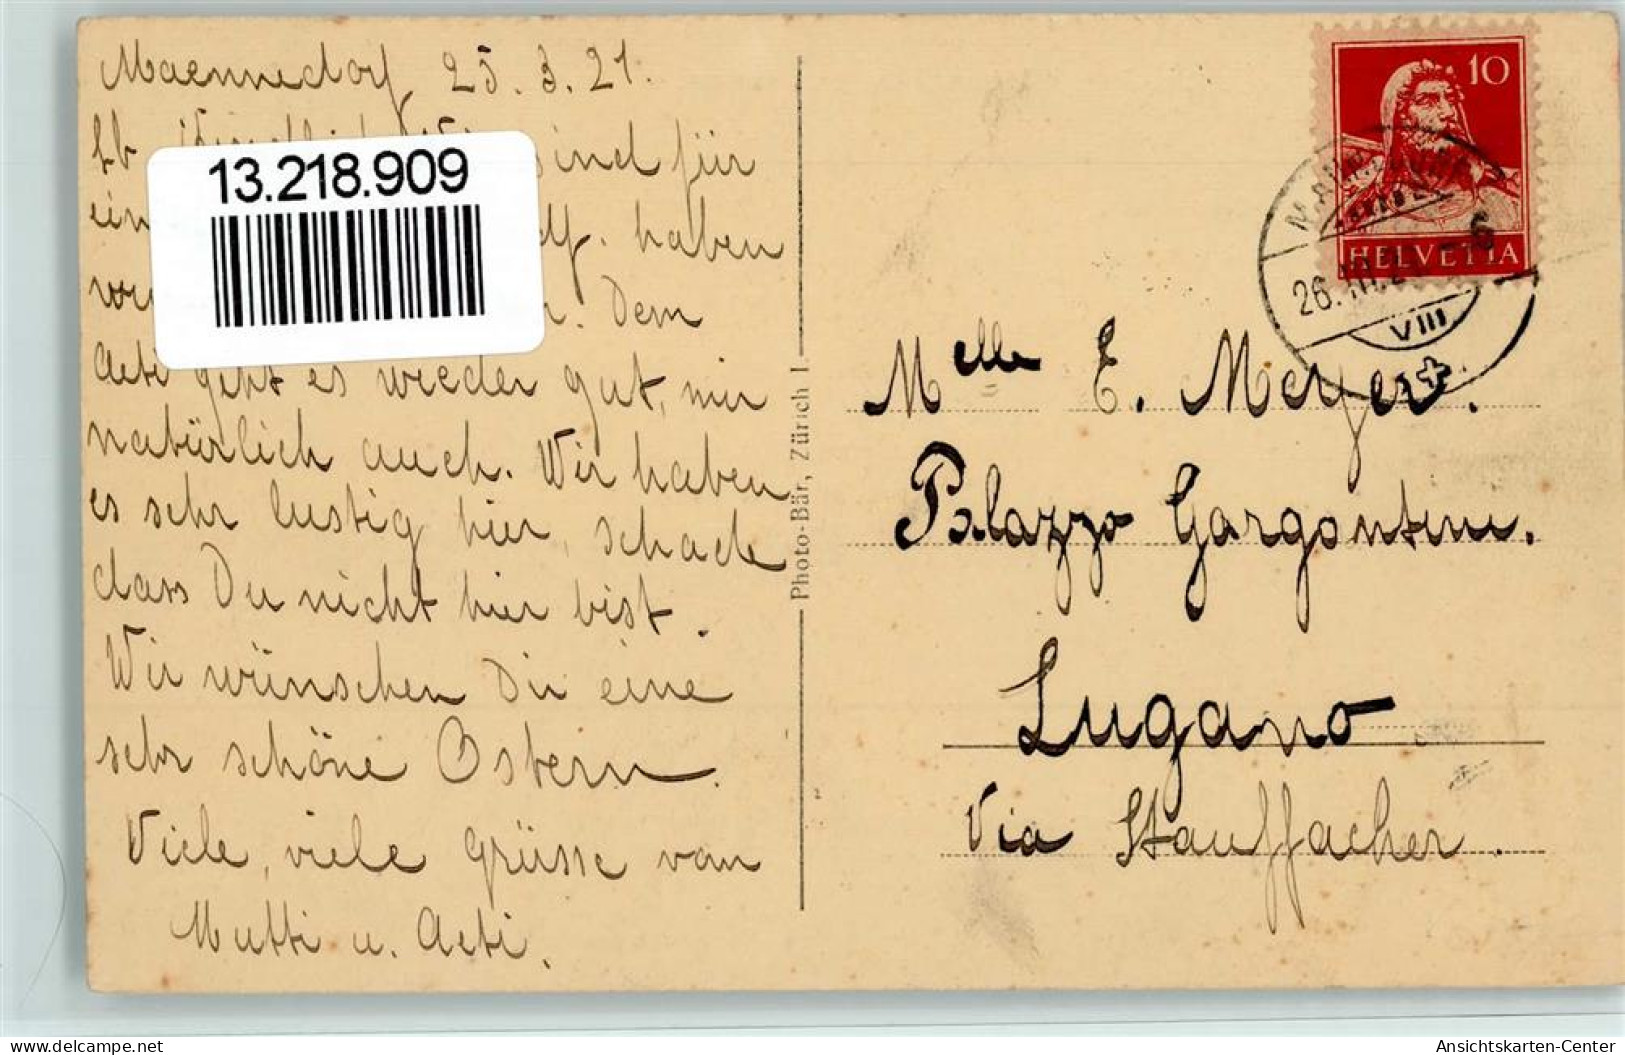 Maennedorf 25.3.21.
lb. sind für
ein df. haben
Dem
Aeti geht es wieder gut, mir
natürlich auch. Wir haben
es sehr lustig hier, schade
dass Du nicht hier bist.
Wir wünschen Dir eine
sehr schöne Ostern.
Viele, viele Grüsse von
Mutti u. Aeti.
13.218.909
Photo-Bär, Zürich 1.
10
HELVETIA
26.III.21
VIII
Melle E. Meyer.
Palazzo Gargantini.
Lugano
Via Stauffacher.
delcampe.net
Ansichtskarten-Center